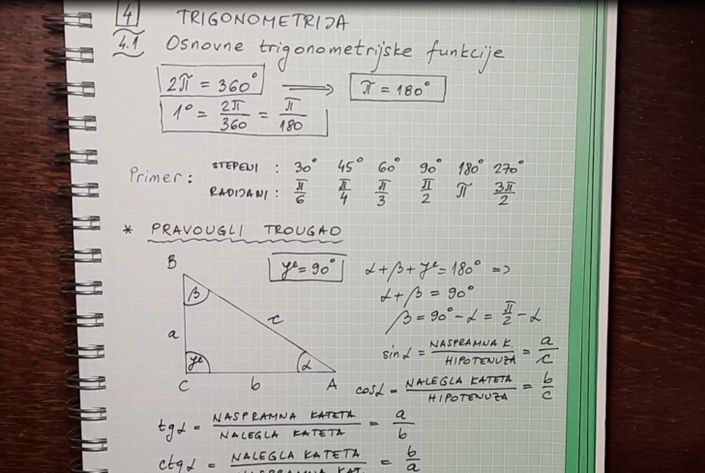 4 TRIGONOMETRIJA
4.1 Osnovne trigonometrijske funkcije
2π = 360° ⟹ π = 180°
1° = 2π/360 = π/180
Primer: STEPENI : 30° 45° 60° 90° 180° 270°
RADIJANI : π/6 π/4 π/3 π/2 π 3π/2
* PRAVOUGLI TROUGAO
B
γ = 90° α + β + γ = 180° =>
β
α + β = 90°
c
β = 90° - α = π/2 - α
a
sin α = NASPRAMNA K. / HIPOTENUZA = a/c
γ α
C b A
cos α = NALEGLA KATETA / HIPOTENUZA = b/c
tg α = NASPRAMNA KATETA / NALEGLA KATETA = a/b
ctg α = NALEGLA KATETA / NASPRAMNA KAT = b/a